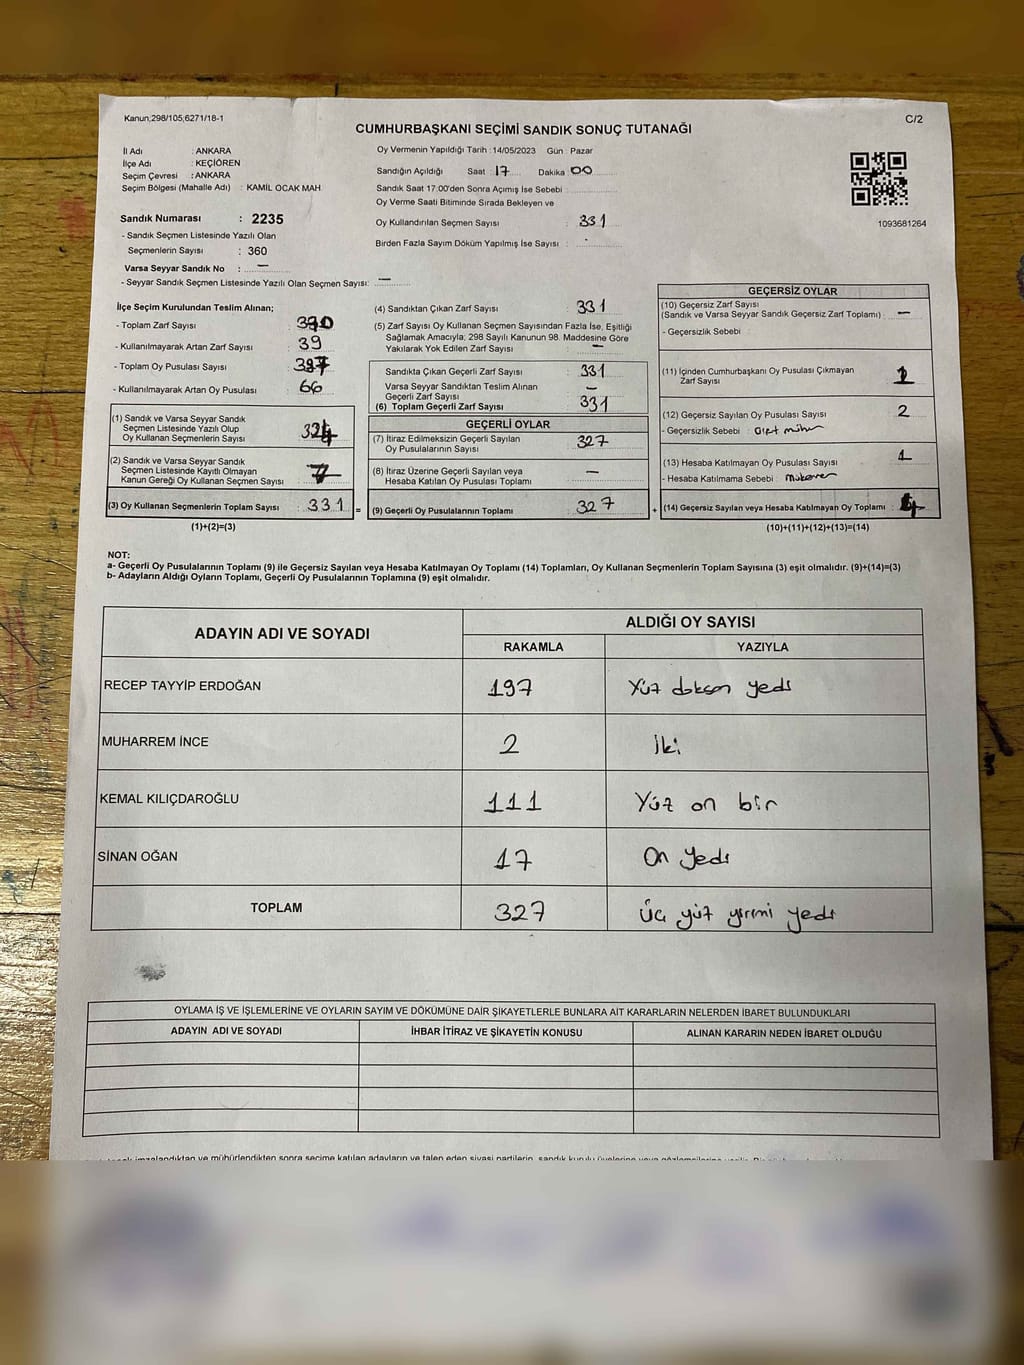 Kanun;298/105;6271/18-1
C/2
CUMHURBAŞKANI SEÇİMİ SANDIK SONUÇ TUTANAĞI
İl Adı : ANKARA
İlçe Adı : KEÇİÖREN
Seçim Çevresi : ANKARA
Seçim Bölgesi (Mahalle Adı) : KAMİL OCAK MAH
Sandık Numarası : 2235
- Sandık Seçmen Listesinde Yazılı Olan
Seçmenlerin Sayısı : 360
Varsa Seyyar Sandık No : —
- Seyyar Sandık Seçmen Listesinde Yazılı Olan Seçmen Sayısı: —
Oy Vermenin Yapıldığı Tarih : 14/05/2023 Gün : Pazar
Sandığın Açıldığı Saat : 17 Dakika : 00
Sandık Saat 17.00'den Sonra Açımış İse Sebebi :
Oy Verme Saati Bitiminde Sırada Bekleyen ve
Oy Kullandırılan Seçmen Sayısı : 331
Birden Fazla Sayım Döküm Yapılmış İse Sayısı :
1093681264
İlçe Seçim Kurulundan Teslim Alınan;
- Toplam Zarf Sayısı :
- Kullanılmayarak Artan Zarf Sayısı : 39
- Toplam Oy Pusulası Sayısı :
- Kullanılmayarak Artan Oy Pusulası : 66
(1) Sandık ve Varsa Seyyar Sandık
Seçmen Listesinde Yazılı Olup
Oy Kullanan Seçmenlerin Sayısı : 324
(2) Sandık ve Varsa Seyyar Sandık
Seçmen Listesinde Kayıtlı Olmayan
Kanun Gereği Oy Kullanan Seçmen Sayısı : 7
(3) Oy Kullanan Seçmenlerin Toplam Sayısı : 331 =
(1)+(2)=(3)
(4) Sandıktan Çıkan Zarf Sayısı : 331
(5) Zarf Sayısı Oy Kullanan Seçmen Sayısından Fazla İse, Eşitliği
Sağlamak Amacıyla; 298 Sayılı Kanunun 98. Maddesine Göre
Yakılarak Yok Edilen Zarf Sayısı : —
Sandıkta Çıkan Geçerli Zarf Sayısı : 331
Varsa Seyyar Sandıktan Teslim Alınan
Geçerli Zarf Sayısı : —
(6) Toplam Geçerli Zarf Sayısı : 331
GEÇERLİ OYLAR
(7) İtiraz Edilmeksizin Geçerli Sayılan
Oy Pusulalarının Sayısı : 327
(8) İtiraz Üzerine Geçerli Sayılan veya
Hesaba Katılan Oy Pusulası Toplamı : —
(9) Geçerli Oy Pusulalarının Toplamı : 327 +
GEÇERSİZ OYLAR
(10) Geçersiz Zarf Sayısı
(Sandık ve Varsa Seyyar Sandık Geçersiz Zarf Toplamı) : —
- Geçersizlik Sebebi :
(11) İçinden Cumhurbaşkanı Oy Pusulası Çıkmayan
Zarf Sayısı : 1
(12) Geçersiz Sayılan Oy Pusulası Sayısı : 2
- Geçersizlik Sebebi : Çift mühür
(13) Hesaba Katılmayan Oy Pusulası Sayısı : 1
- Hesaba Katılmama Sebebi :
(14) Geçersiz Sayılan veya Hesaba Katılmayan Oy Toplamı : 4
(10)+(11)+(12)+(13)=(14)
NOT:
a- Geçerli Oy Pusulalarının Toplamı (9) ile Geçersiz Sayılan veya Hesaba Katılmayan Oy Toplamı (14) Toplamları, Oy Kullanan Seçmenlerin Toplam Sayısına (3) eşit olmalıdır. (9)+(14)=(3)
b- Adayların Aldığı Oyların Toplamı, Geçerli Oy Pusulalarının Toplamına (9) eşit olmalıdır.
ADAYIN ADI VE SOYADI
ALDIĞI OY SAYISI
RAKAMLA YAZIYLA
RECEP TAYYİP ERDOĞAN 197 Yüz doksan yedi
MUHARREM İNCE 2 İki
KEMAL KILIÇDAROĞLU 111 Yüz on bir
SİNAN OĞAN 17 On yedi
TOPLAM 327 Üç yüz yirmi yedi
OYLAMA İŞ VE İŞLEMLERİNE VE OYLARIN SAYIM VE DÖKÜMÜNE DAİR ŞİKAYETLERLE BUNLARA AİT KARARLARIN NELERDEN İBARET BULUNDUKLARI
ADAYIN ADI VE SOYADI İHBAR İTİRAZ VE ŞİKAYETİN KONUSU ALINAN KARARIN NEDEN İBARET OLDUĞU
imzalandıktan ve mühürlendikten sonra seçime katılan adayların ve talep eden siyasi partilerin, sandık kurulu üyelerine veya